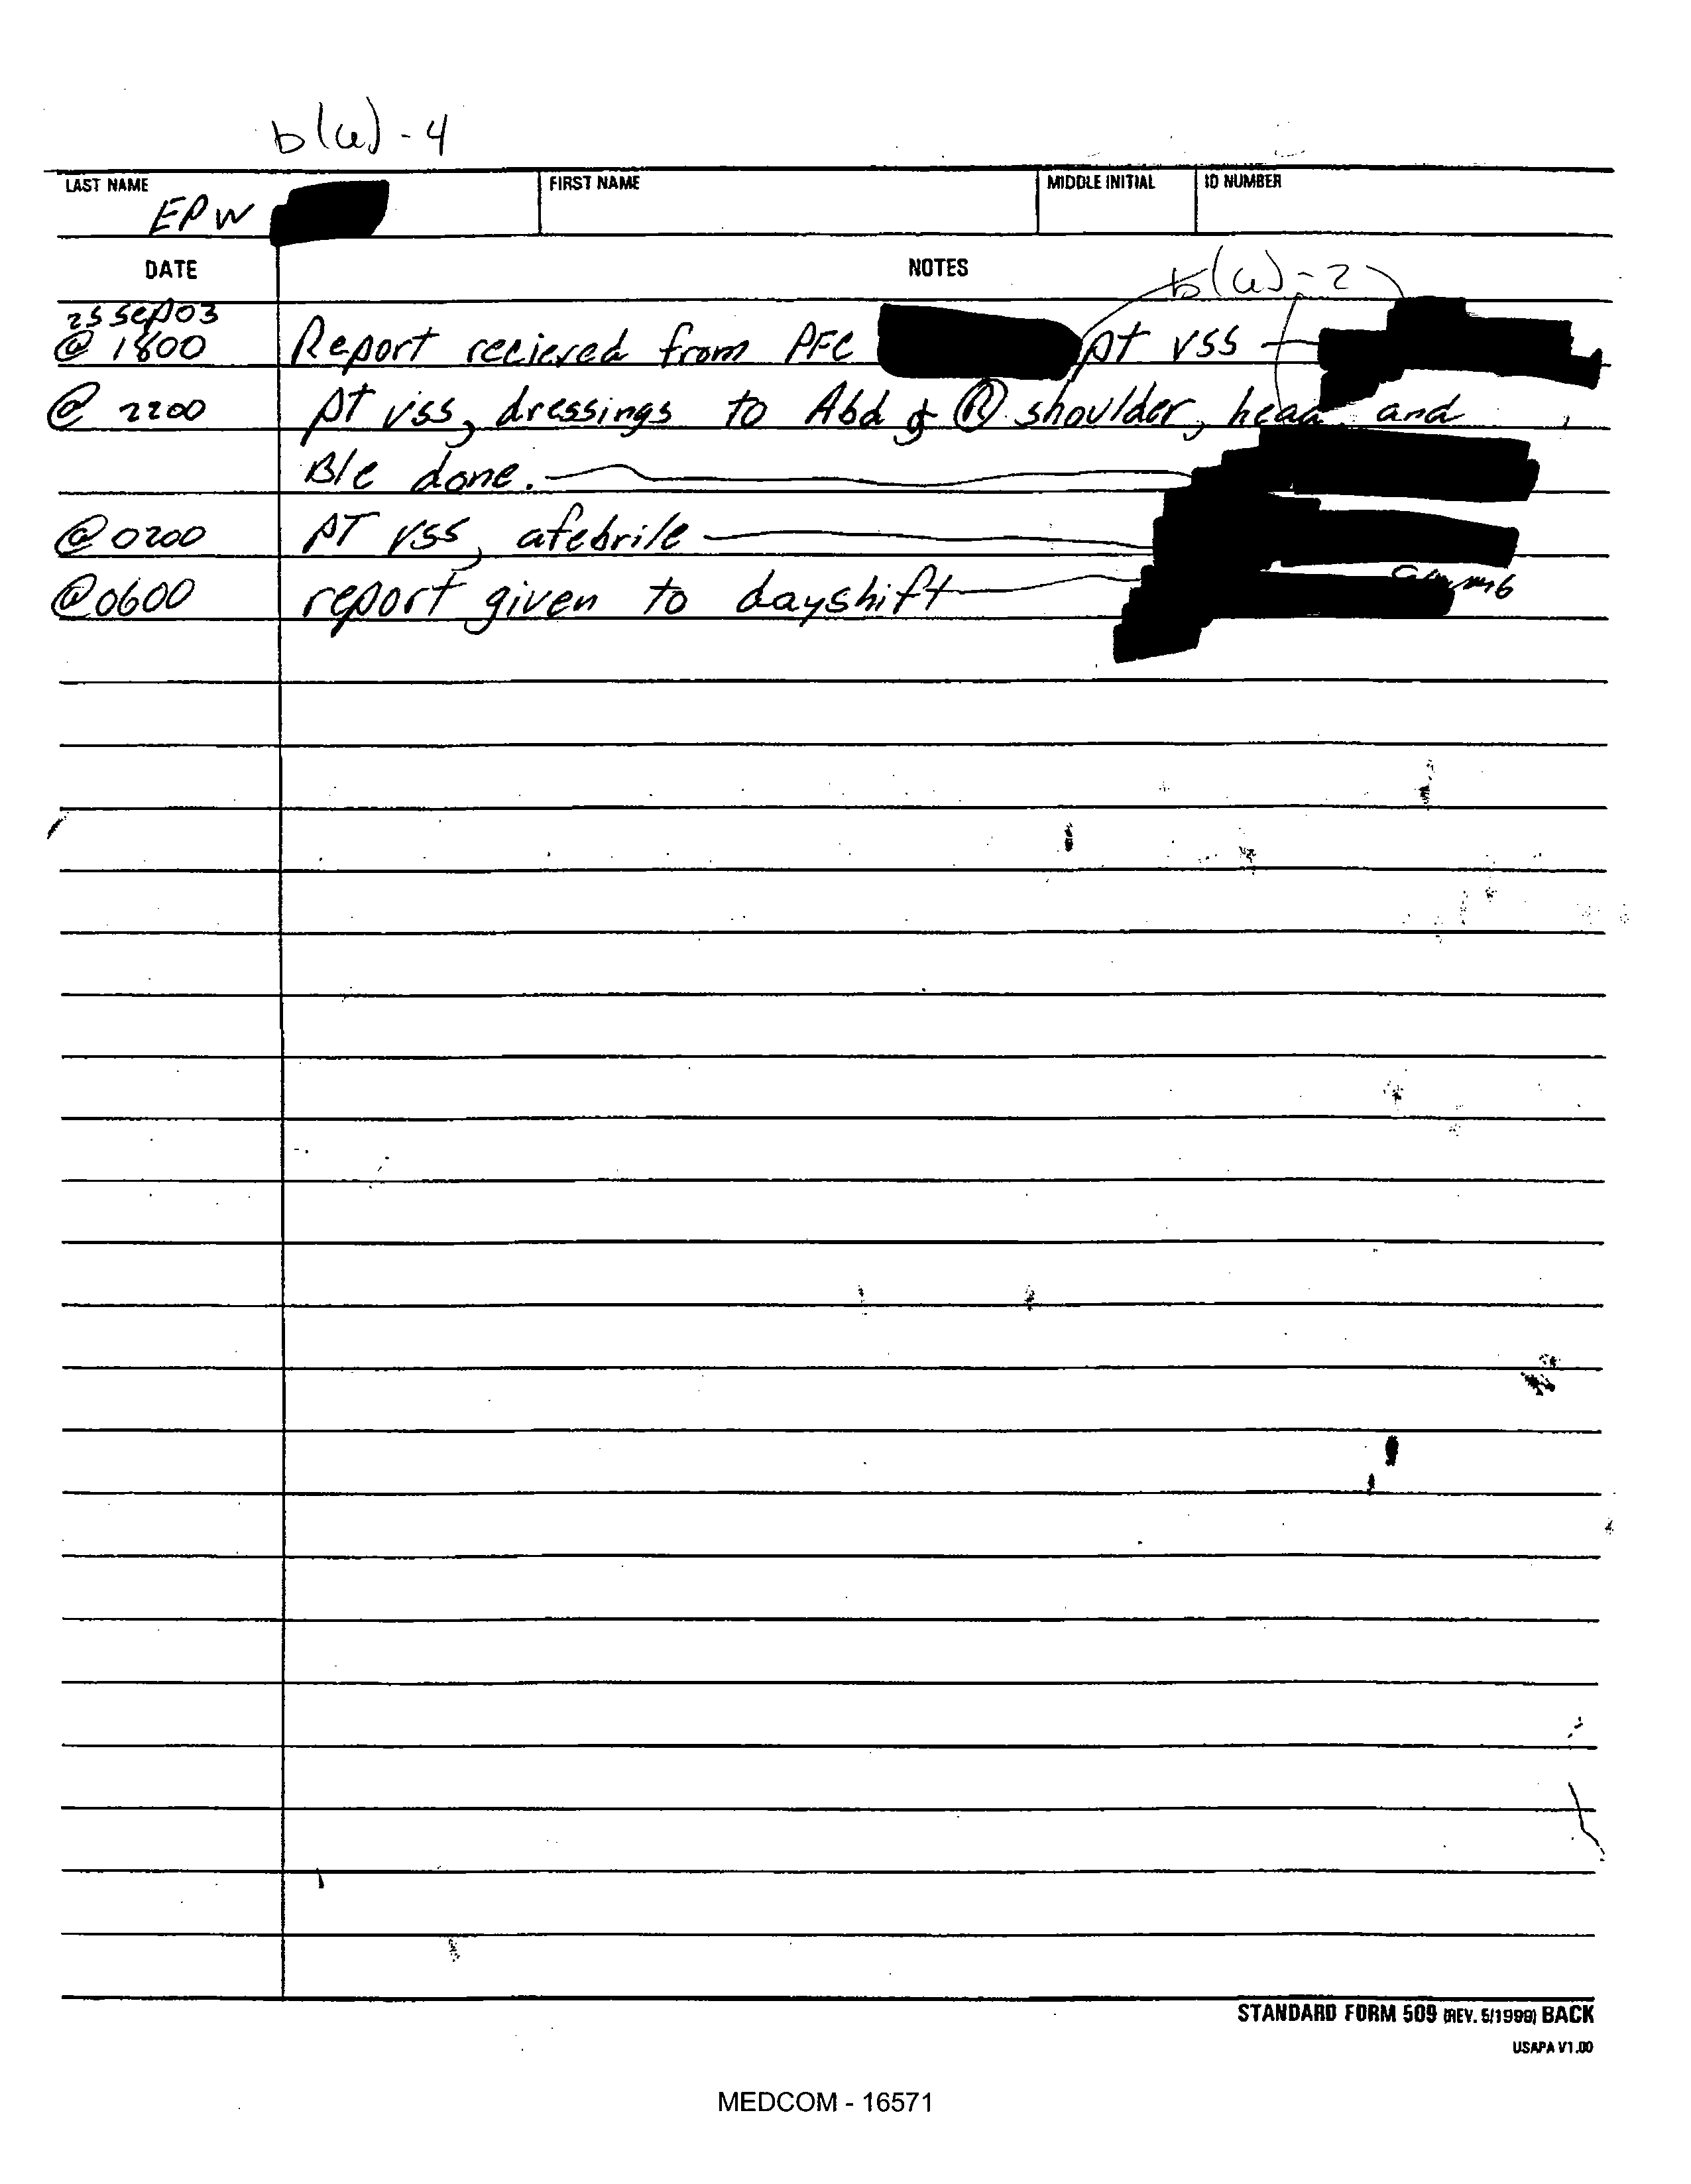 b(6)-4
LAST NAME FIRST NAME MIDDLE INITIAL ID NUMBER
EPW
DATE NOTES
b(6)-2
25 Sep 03
@ 1800 Report recieved from PFC pt vss
@ 2200 pt vss, dressings to Abd & Ⓡ shoulder, head and
B/e done.
@ 0200 pt vss, afebrile
@ 0600 report given to dayshift
STANDARD FORM 509 (REV. 5/1999) BACK
USAPA V1.00
MEDCOM - 16571